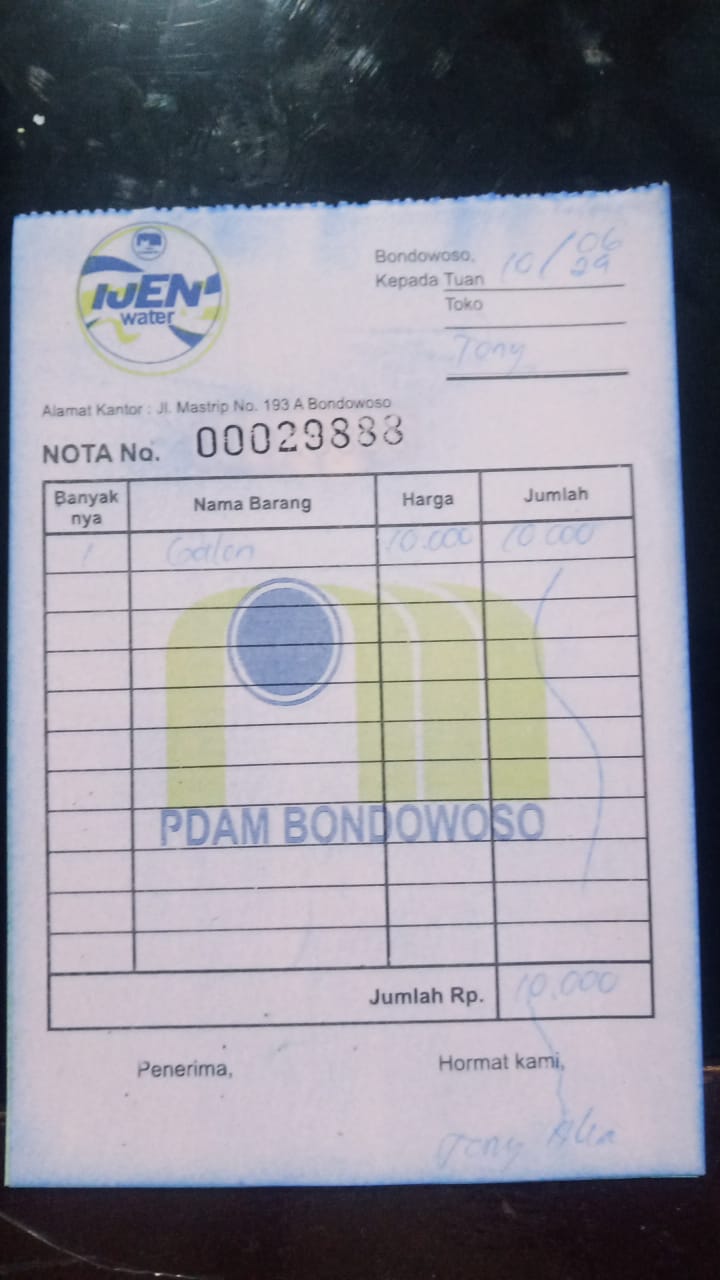 IJEN
water
Bondowoso, 10/06
24
Kepada Tuan
Toko
Tony
Alamat Kantor : Jl. Mastrip No. 193 A Bondowoso
NOTA No. 00029888
Banyak nya Nama Barang Harga Jumlah
1 Galon 10.000 10.000
PDAM BONDOWOSO
Jumlah Rp. 10.000
Penerima, Hormat kami,
Tony